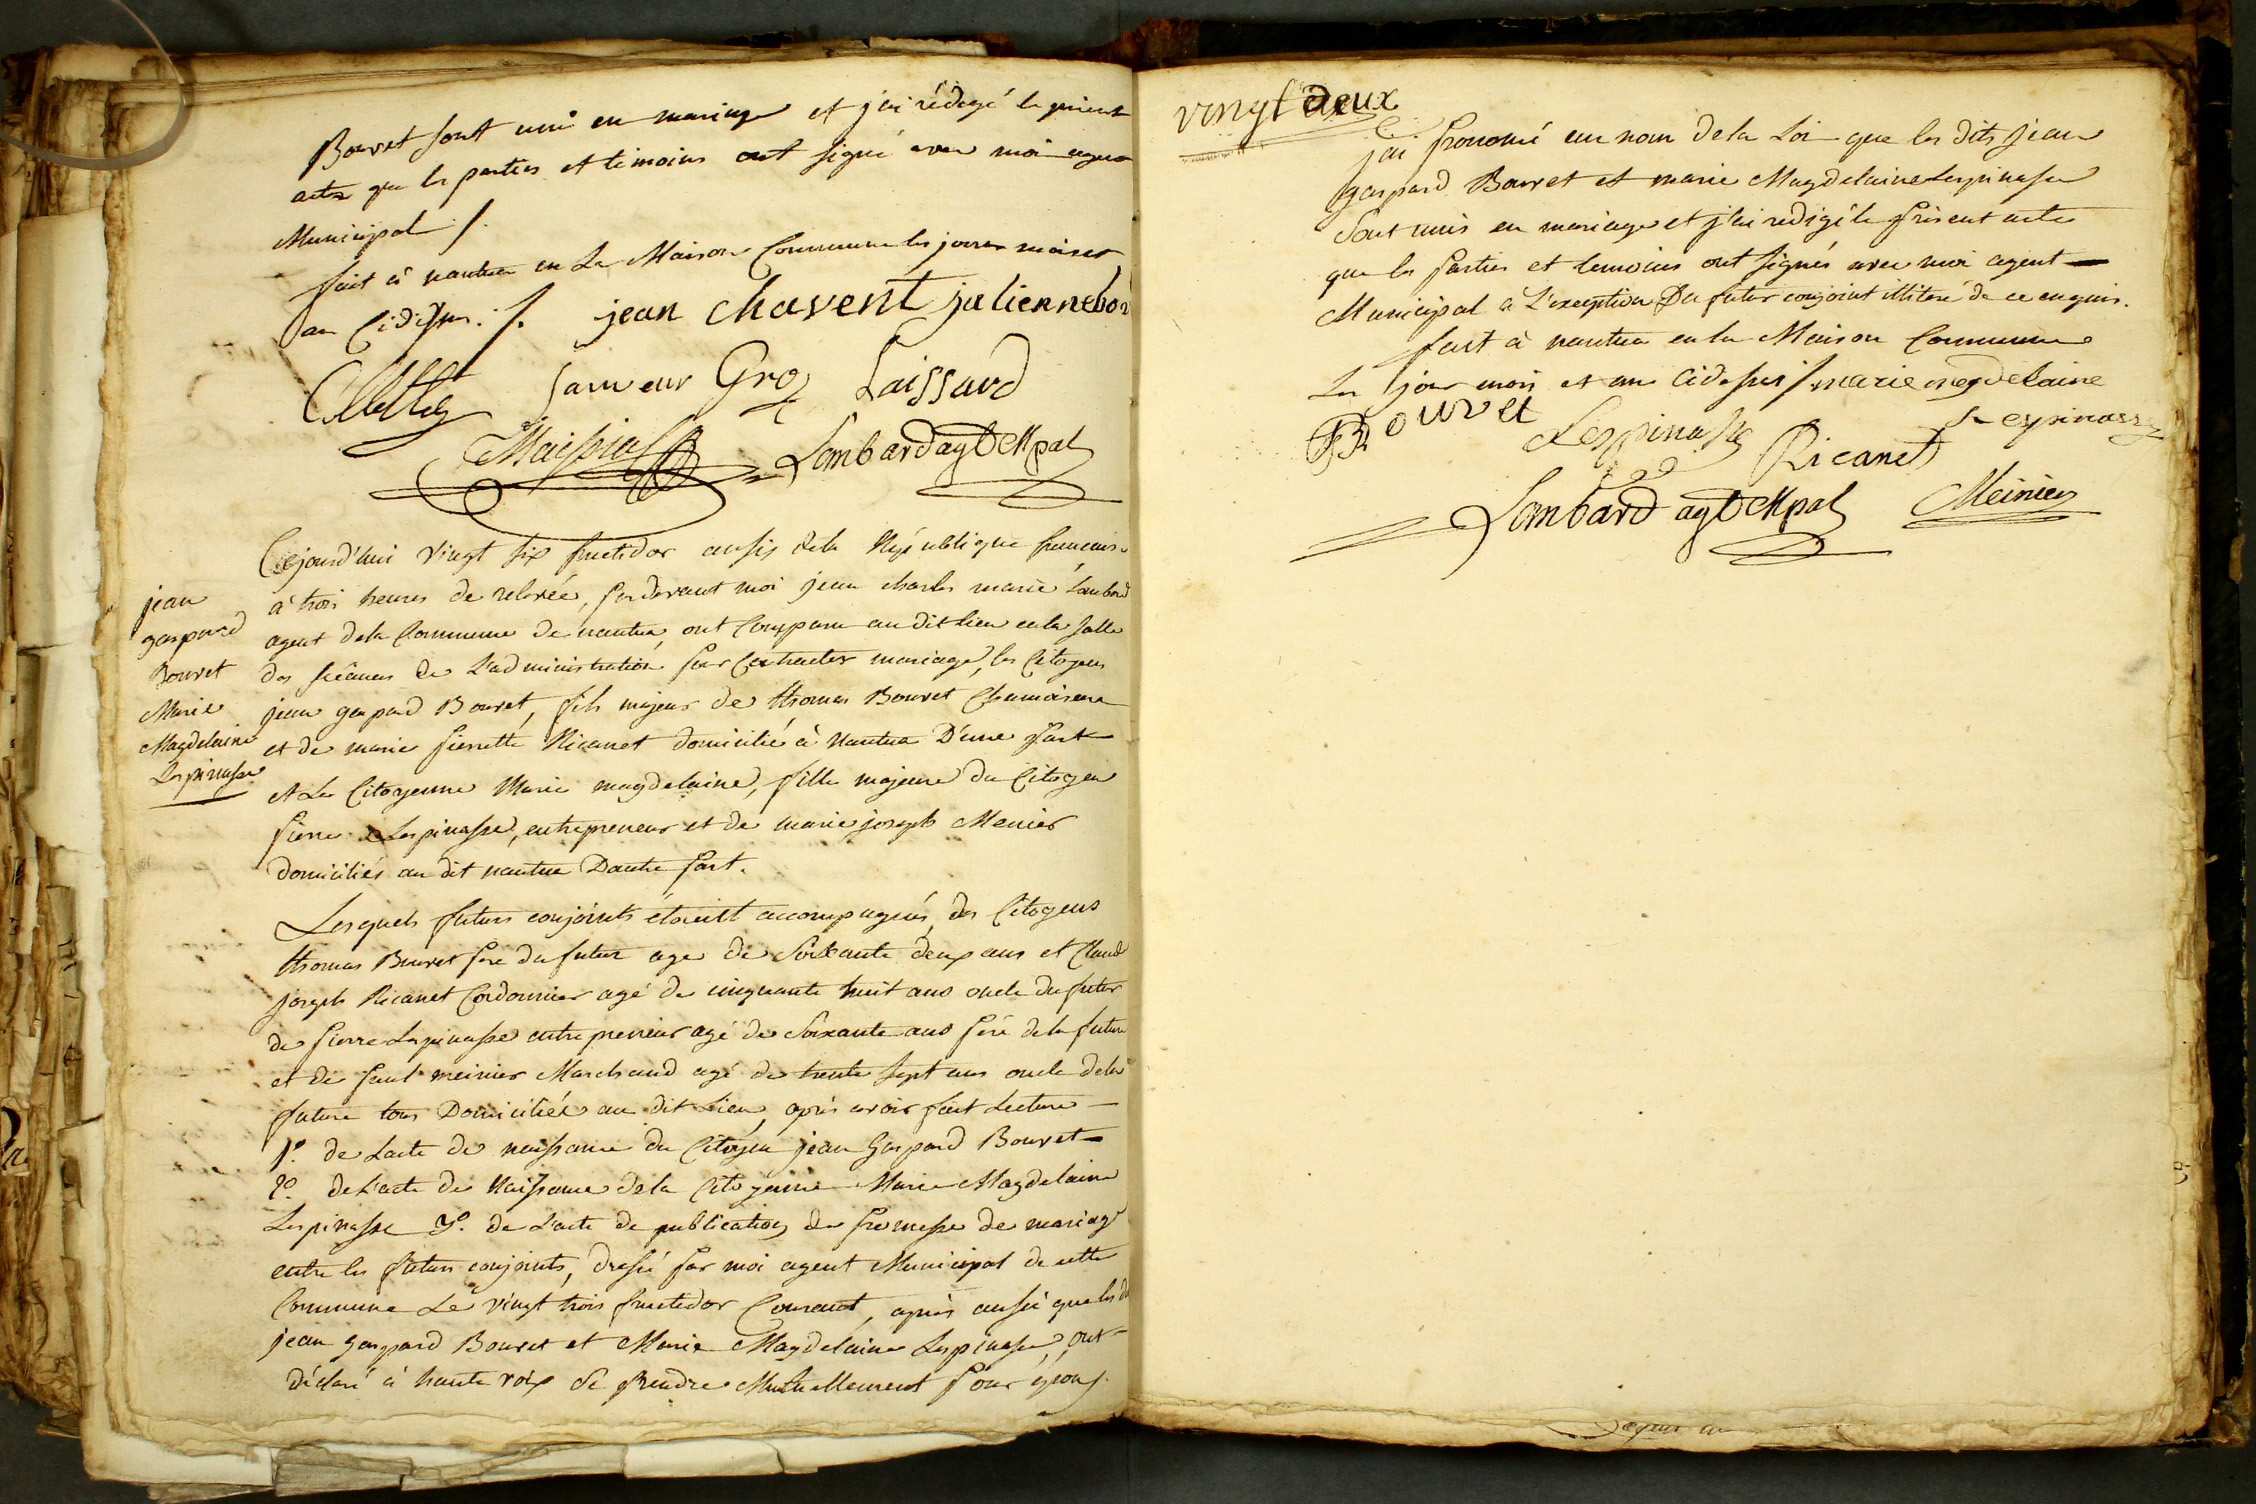 Bouvet sont uni en mariage et j'ai rédigé le présent
acte que les parties et témoins ont signé avec moi agent
Municipal ./.
fait à nantua en La Maison Commune les jour mois et
an Cidessus ./. jean chavent julienne bor
Sauveur Groz Laissard
Lombard agt Mpal
Cejourd'hui vingt six fructidor an six de la République française
à trois heures de relevée, par devant moi jean charles marie Lombard
agent de la Commune de nantua, ont Comparu au dit Lieu en la salle
des séances de L'administration pour Contracter mariage, les Citoyens
jean gaspard Bouvet, fils majeur de thomas Bouvet Chamoiseur
et de marie pierrette Ricanet domicilié à nantua D'une Part
et La Citoyenne Marie magdelaine, fille majeure du Citoyen
pierre Lespinasse, entrepreneur et de marie joseph Meinier
domiciliés au dit nantua Dautre part.
jean
gaspard
Bouvet
Marie
Magdelaine
Lespinasse
Lesquels futurs conjoints étoient accompagnés, des Citoyens
thomas Bouvet père du futur age de Soixante deux ans et Claude
joseph Ricanet Cordonnier agé de cinquante huit ans oncle du futur
de pierre Lespinasse entrepreneur agé de Soixante ans père de la future
et de paul meinier Marchand agé de trente sept ans oncle de la
future tous Domiciliés au dit Lieu, après avoir fait Lecture
1o. de Lacte de naissance du Citoyen jean Gaspard Bouvet
2o. de L'acte de Naissance de la Citoyenne Marie Magdelaine
Lespinasse 3o. de L'acte de publication de promesse de mariage
entre les futurs conjoints, dressé par moi agent Municipal de cette
Commune Le vingt trois fructidor Courant, après aussi que les dt
jean Gaspard Bouvet et Marie Magdelaine Lespinasse, ont
déclaré à haute voix se prendre Mutuellement pour époux.
vingt deux
j'ai prononcé au nom de la Loi que les dits jean
gaspard Bouvet et marie Magdelaine Lespinasse
Sont unis en mariage et j'ai redigé le présent acte
que les parties et temoins ont signés avec moi agent
Municipal à L'exception Du futur conjoint illiteré de ce enquis.
fait à nantua en la Maison Commune
Les jour mois et an Cidessus ./. marie megdelaine
Bouvet Lespinasse Lespinasse
Ricanet
Lombard agt Mpal Meinier